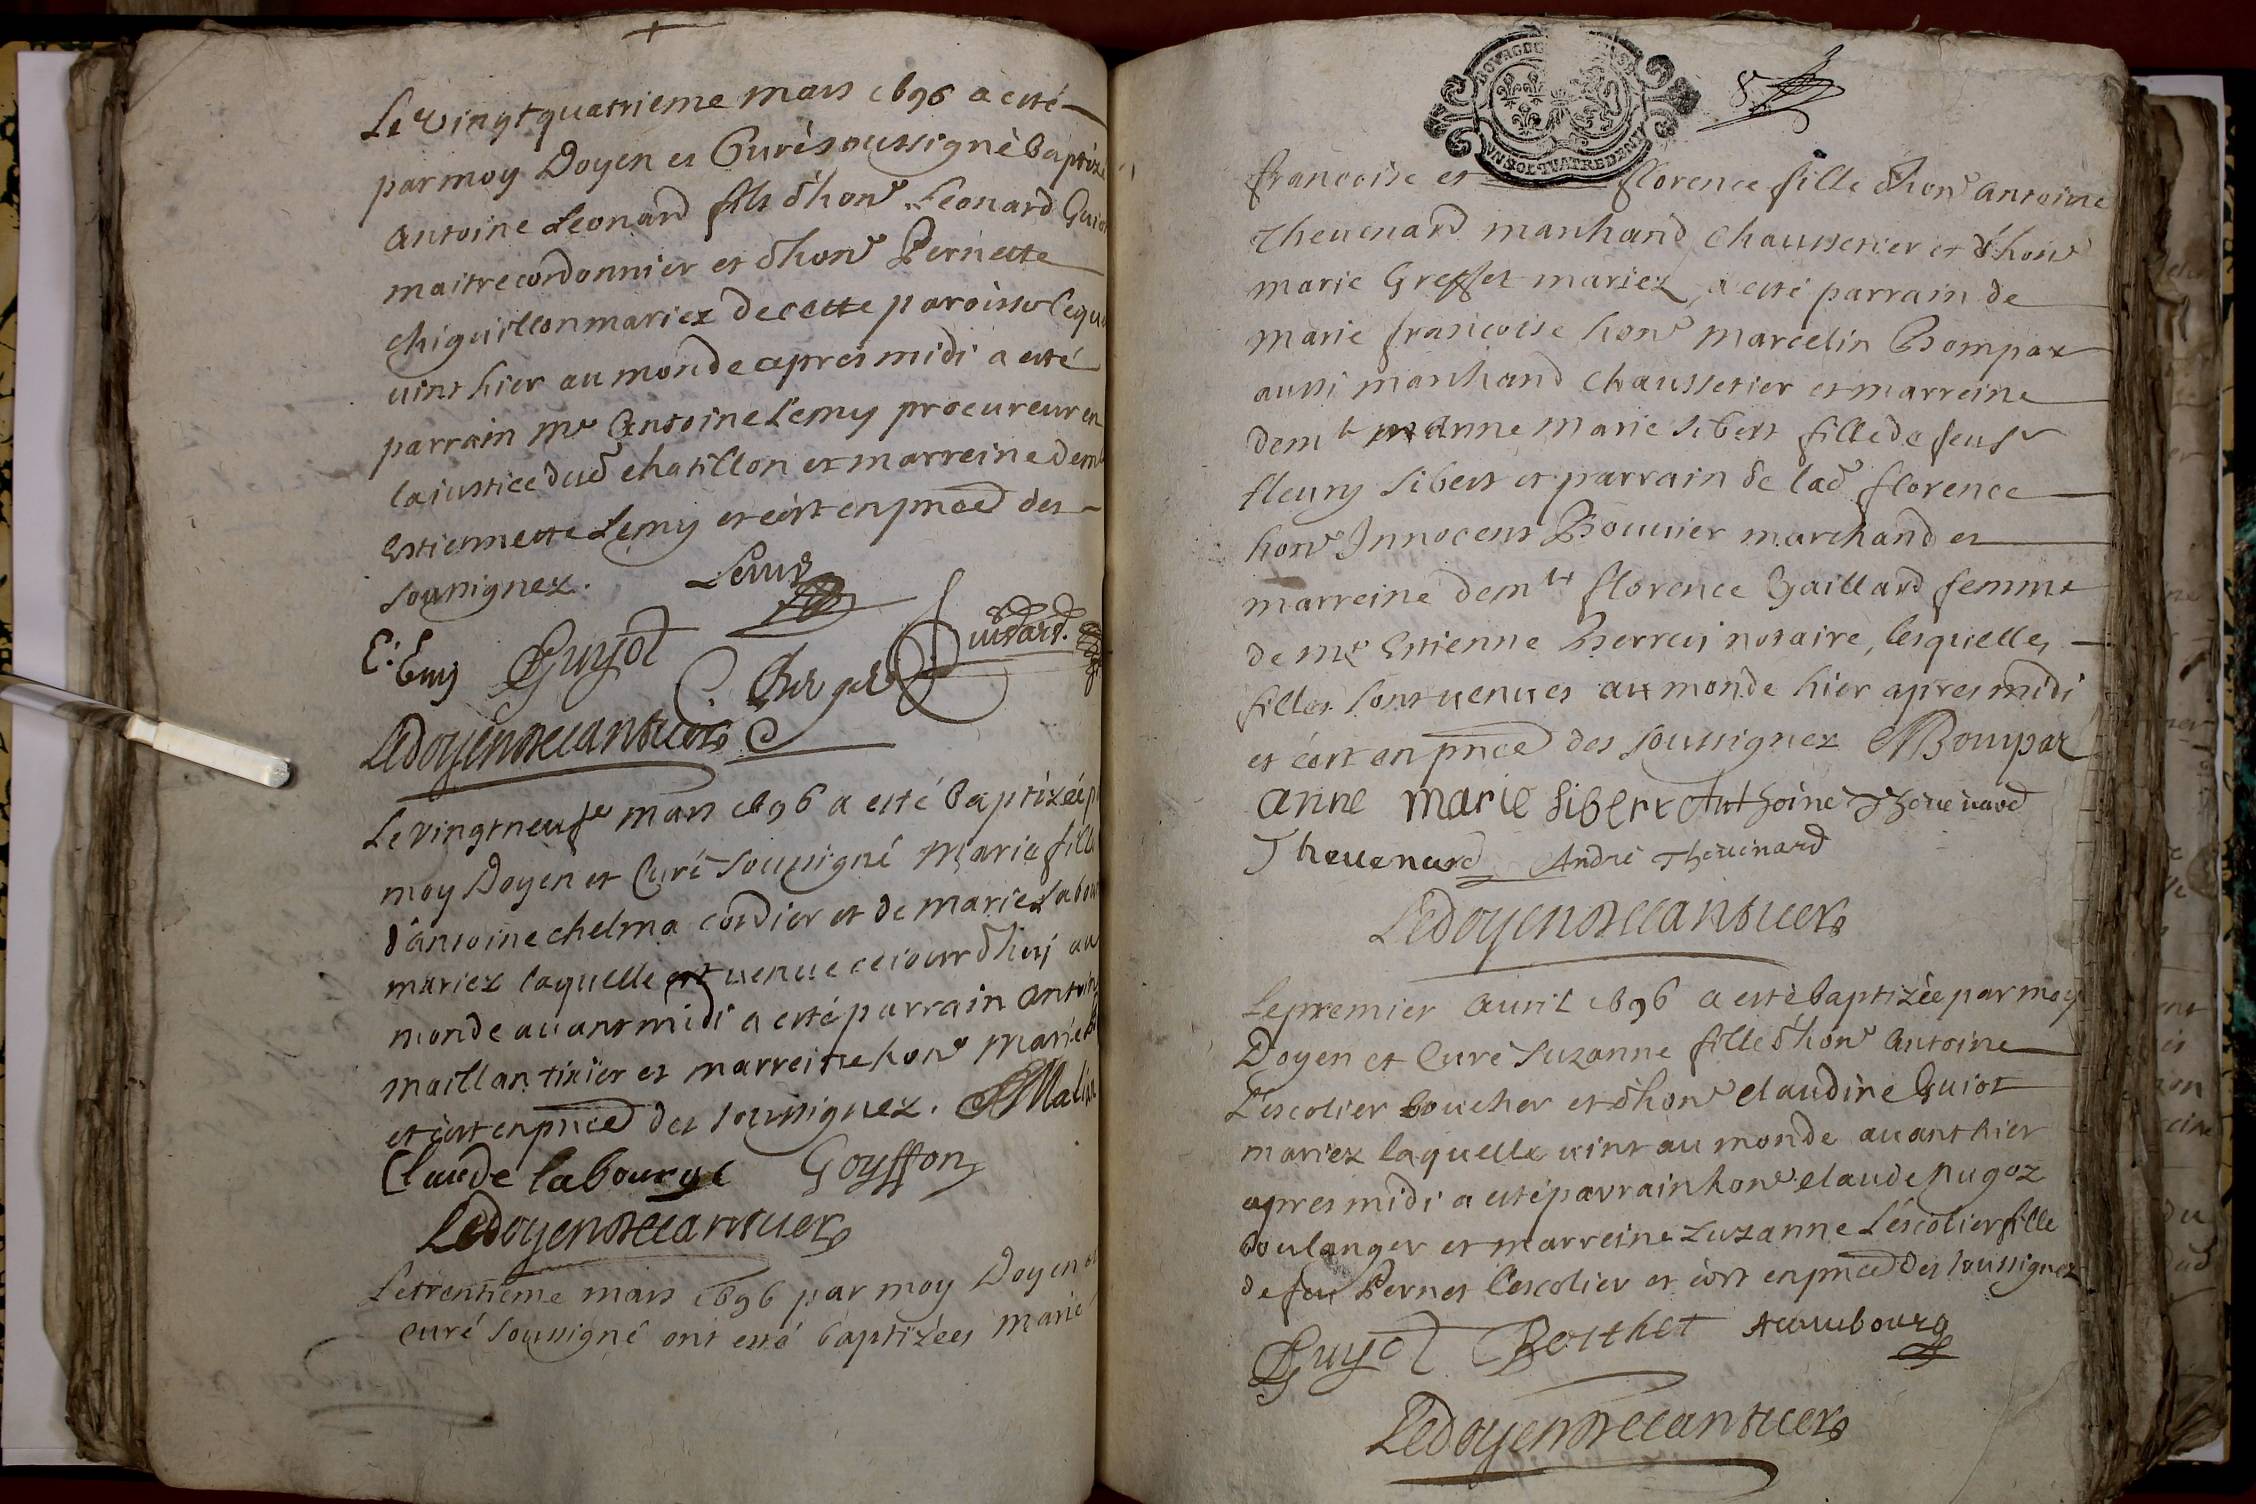 Le vingtquatrieme mars 1696 a esté
par moy Doyen et Curé soussigné baptizé
antoine Leonard fils d'hon^e Leonard Guiot
maitre cordonnier et d'hon^e Pernette
chiquillon mariez de cette paroisse lequel
vint hier au monde apres midi a esté
parrain m^e Antoine Lemy procureur en
la justice dud chatillon et marreine dem^lle
Estiennette Lemy et c'est en pnce des
soussignez. Lemy
E: Lemy Guyot
Ledoyen
Le vingt neuf^e mars 1696 a esté baptizée p
moy Doyen et Curé soussigné Marie fille
d'antoine chelma cordier et de marie
mariez laquelle est venue cejourd'huy au
monde avant midi a esté parrain antoine
maillan tixier et marreine hon^e marie
et c'est en pnce des soussignez.
Claude labourge Goyffon
Ledoyen
Le trentieme mars 1696 par moy Doyen et
curé soussigné ont esté baptizées marie
UN SOL QUATRE DEN
francoise et florence fille d'hon^e antoine
Thevenard marchand chaussetier et d'hon^e
marie Greffet mariez a esté parrain de
marie francoise hon^e marcelin Bompar
aussi marchand chaussetier et marreine
dem^lle anne marie sibert fille de feu s^r
fleury sibert et parrain de lad florence
hon^e Innocent Bouvier marchand et
marreine dem^lle florence Gaillard femme
de m^e Estienne Perrey notaire, lesquelles
filles sont venues au monde hier apres midi
et c'est en pnce des soussignez MBompar
anne marie sibert Anthoine Thevenard
Thevenard André Thevenard
Ledoyen
Le premier avril 1696 a esté baptizée par moy
Doyen et Curé suzanne fille d'hon^e antoine
L'escolier boucher et d'hon^e claudine Guiot
mariez laquelle vint au monde avant hier
apres midi a esté parrain hon^e claude nugoz
boulanger et marreine suzanne L'escolier fille
de feu Pernet l'escolier et c'est en pnce des soussignez
Guyot Berthet
Ledoyen